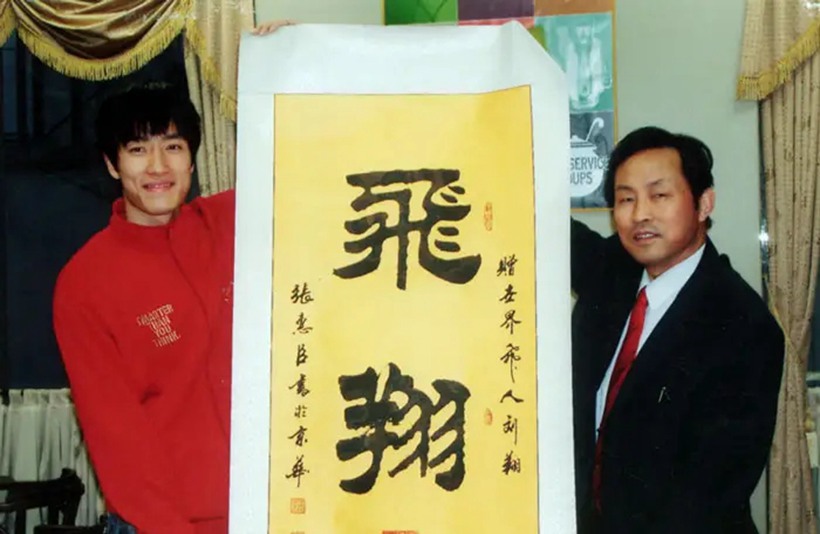 飛翔
贈世界飛人刘翔
張惠臣書於京華
SMARTER
THAN
YOU
THINK.
SERVIC
UPS